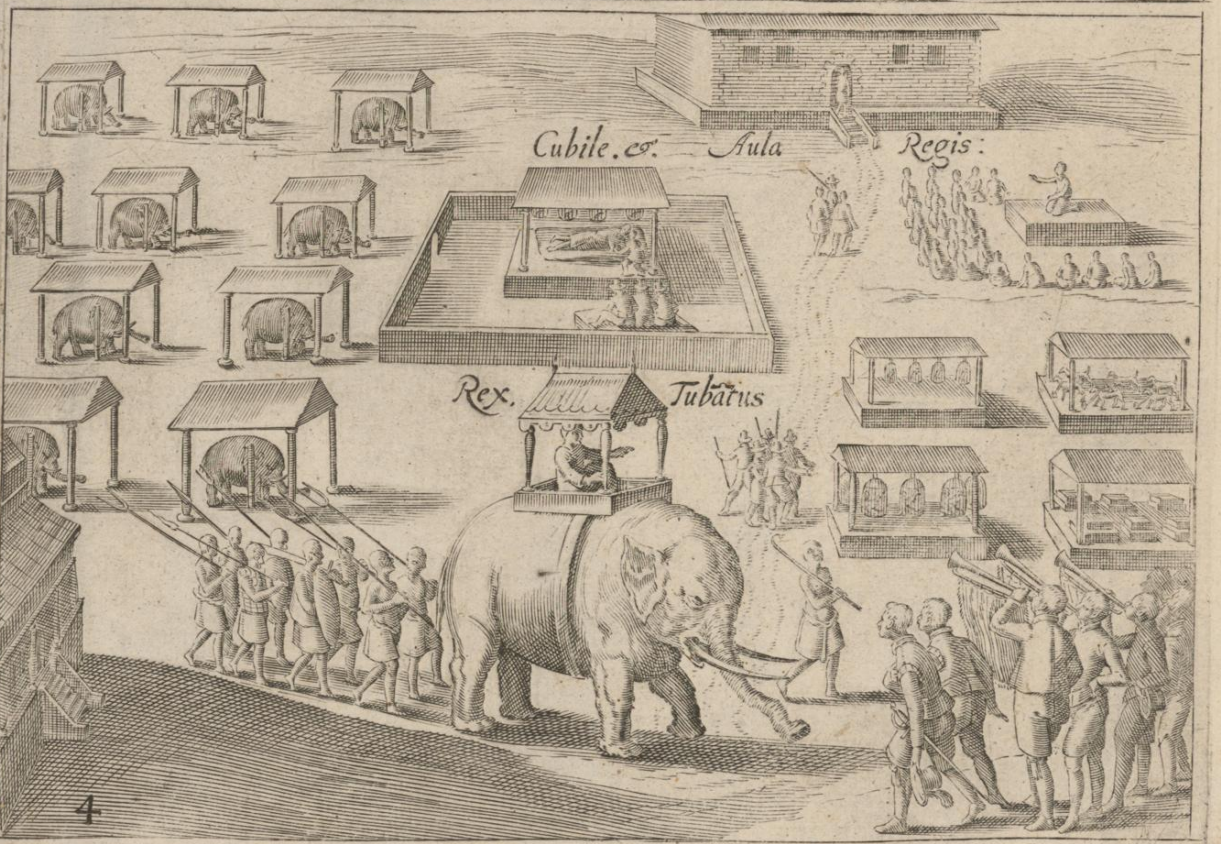 Cubile. &. Aula Regis:
Rex. Tubarus
4